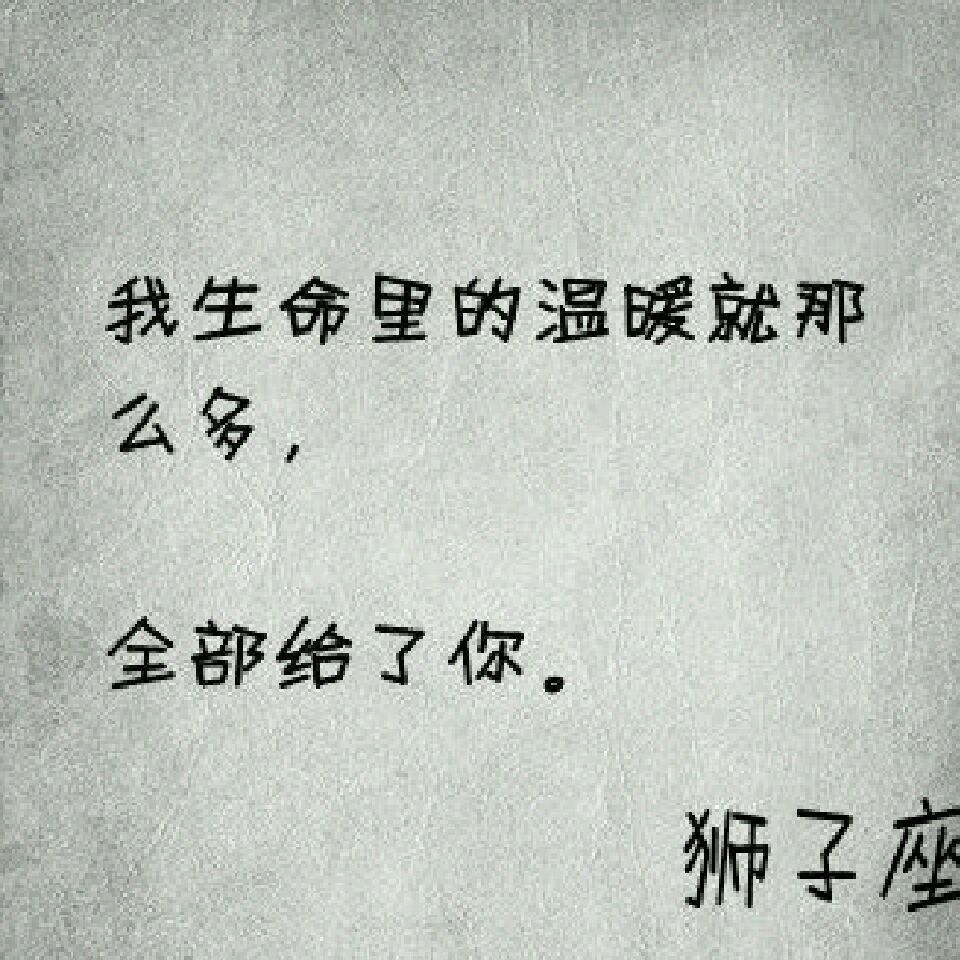 我生命里的温暖就那
么多,
全部给了你。
狮子座